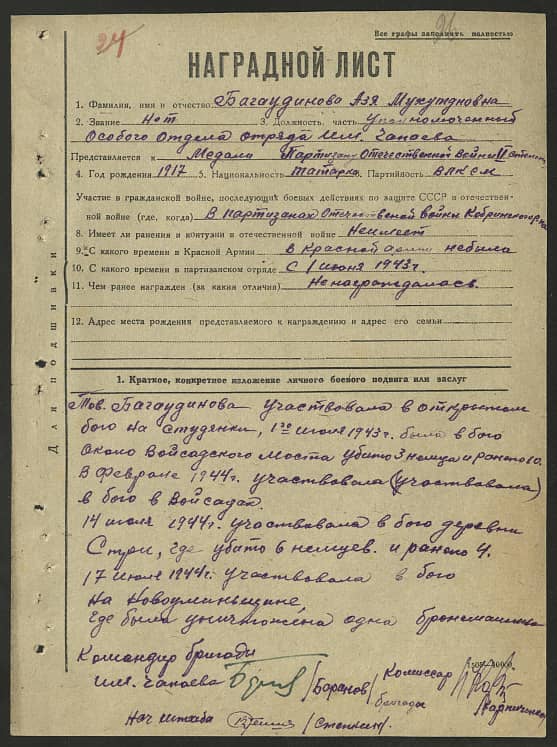 24
Все графы заполнять полностью
НАГРАДНОЙ ЛИСТ
1. Фамилия, имя и отчество Багаудинова Азя Мухутдновна
2. Звание Нет 3. Должность, часть Уполномоченный
Особого отдела отряда им. Чапаева
Представляется к Медали Партизан Отечественной Войны II степени
4. Год рождения 1917 5. Национальность татарка 6. Партийность ВЛКСМ
Участие в гражданской войне, последующих боевых действиях по защите СССР и отечествен-
ной войне (где, когда) В партизанах Отечественной войны Кобринского р-на
8. Имеет ли ранения и контузии в отечественной войне Неимеет
9. С какого времени в Красной Армии В Красной армии небыла
10. С какого времени в партизанском отряде С 1 июня 1943г.
11. Чем ранее награжден (за какия отличия) Ненаграждалась.
12. Адрес места рождения представляемого к награждению и адрес его семьи
Для подшивки
1. Краткое, конкретное изложение личного боевого подвига или заслуг
Тов. Багаудинова участвовала в открытом
бою на Студянки, 1го июля 1943г. была в бою
около Войсадского Моста убито 3 немца и ранено 10.
В феврале 1944г. участвовала (участвовала)
в бою в Войсадах.
14 июля 1944г. участвовала в бою деревни
Стри, где убито 6 немцев. и ранено 4.
17 июля 1944г. участвовала в бою
на
где была уничтожена одна бронемашина
Командир бригады
им. Чапаева /Баранов/
Комиссар
бригады
Нач штаба /Степкин/